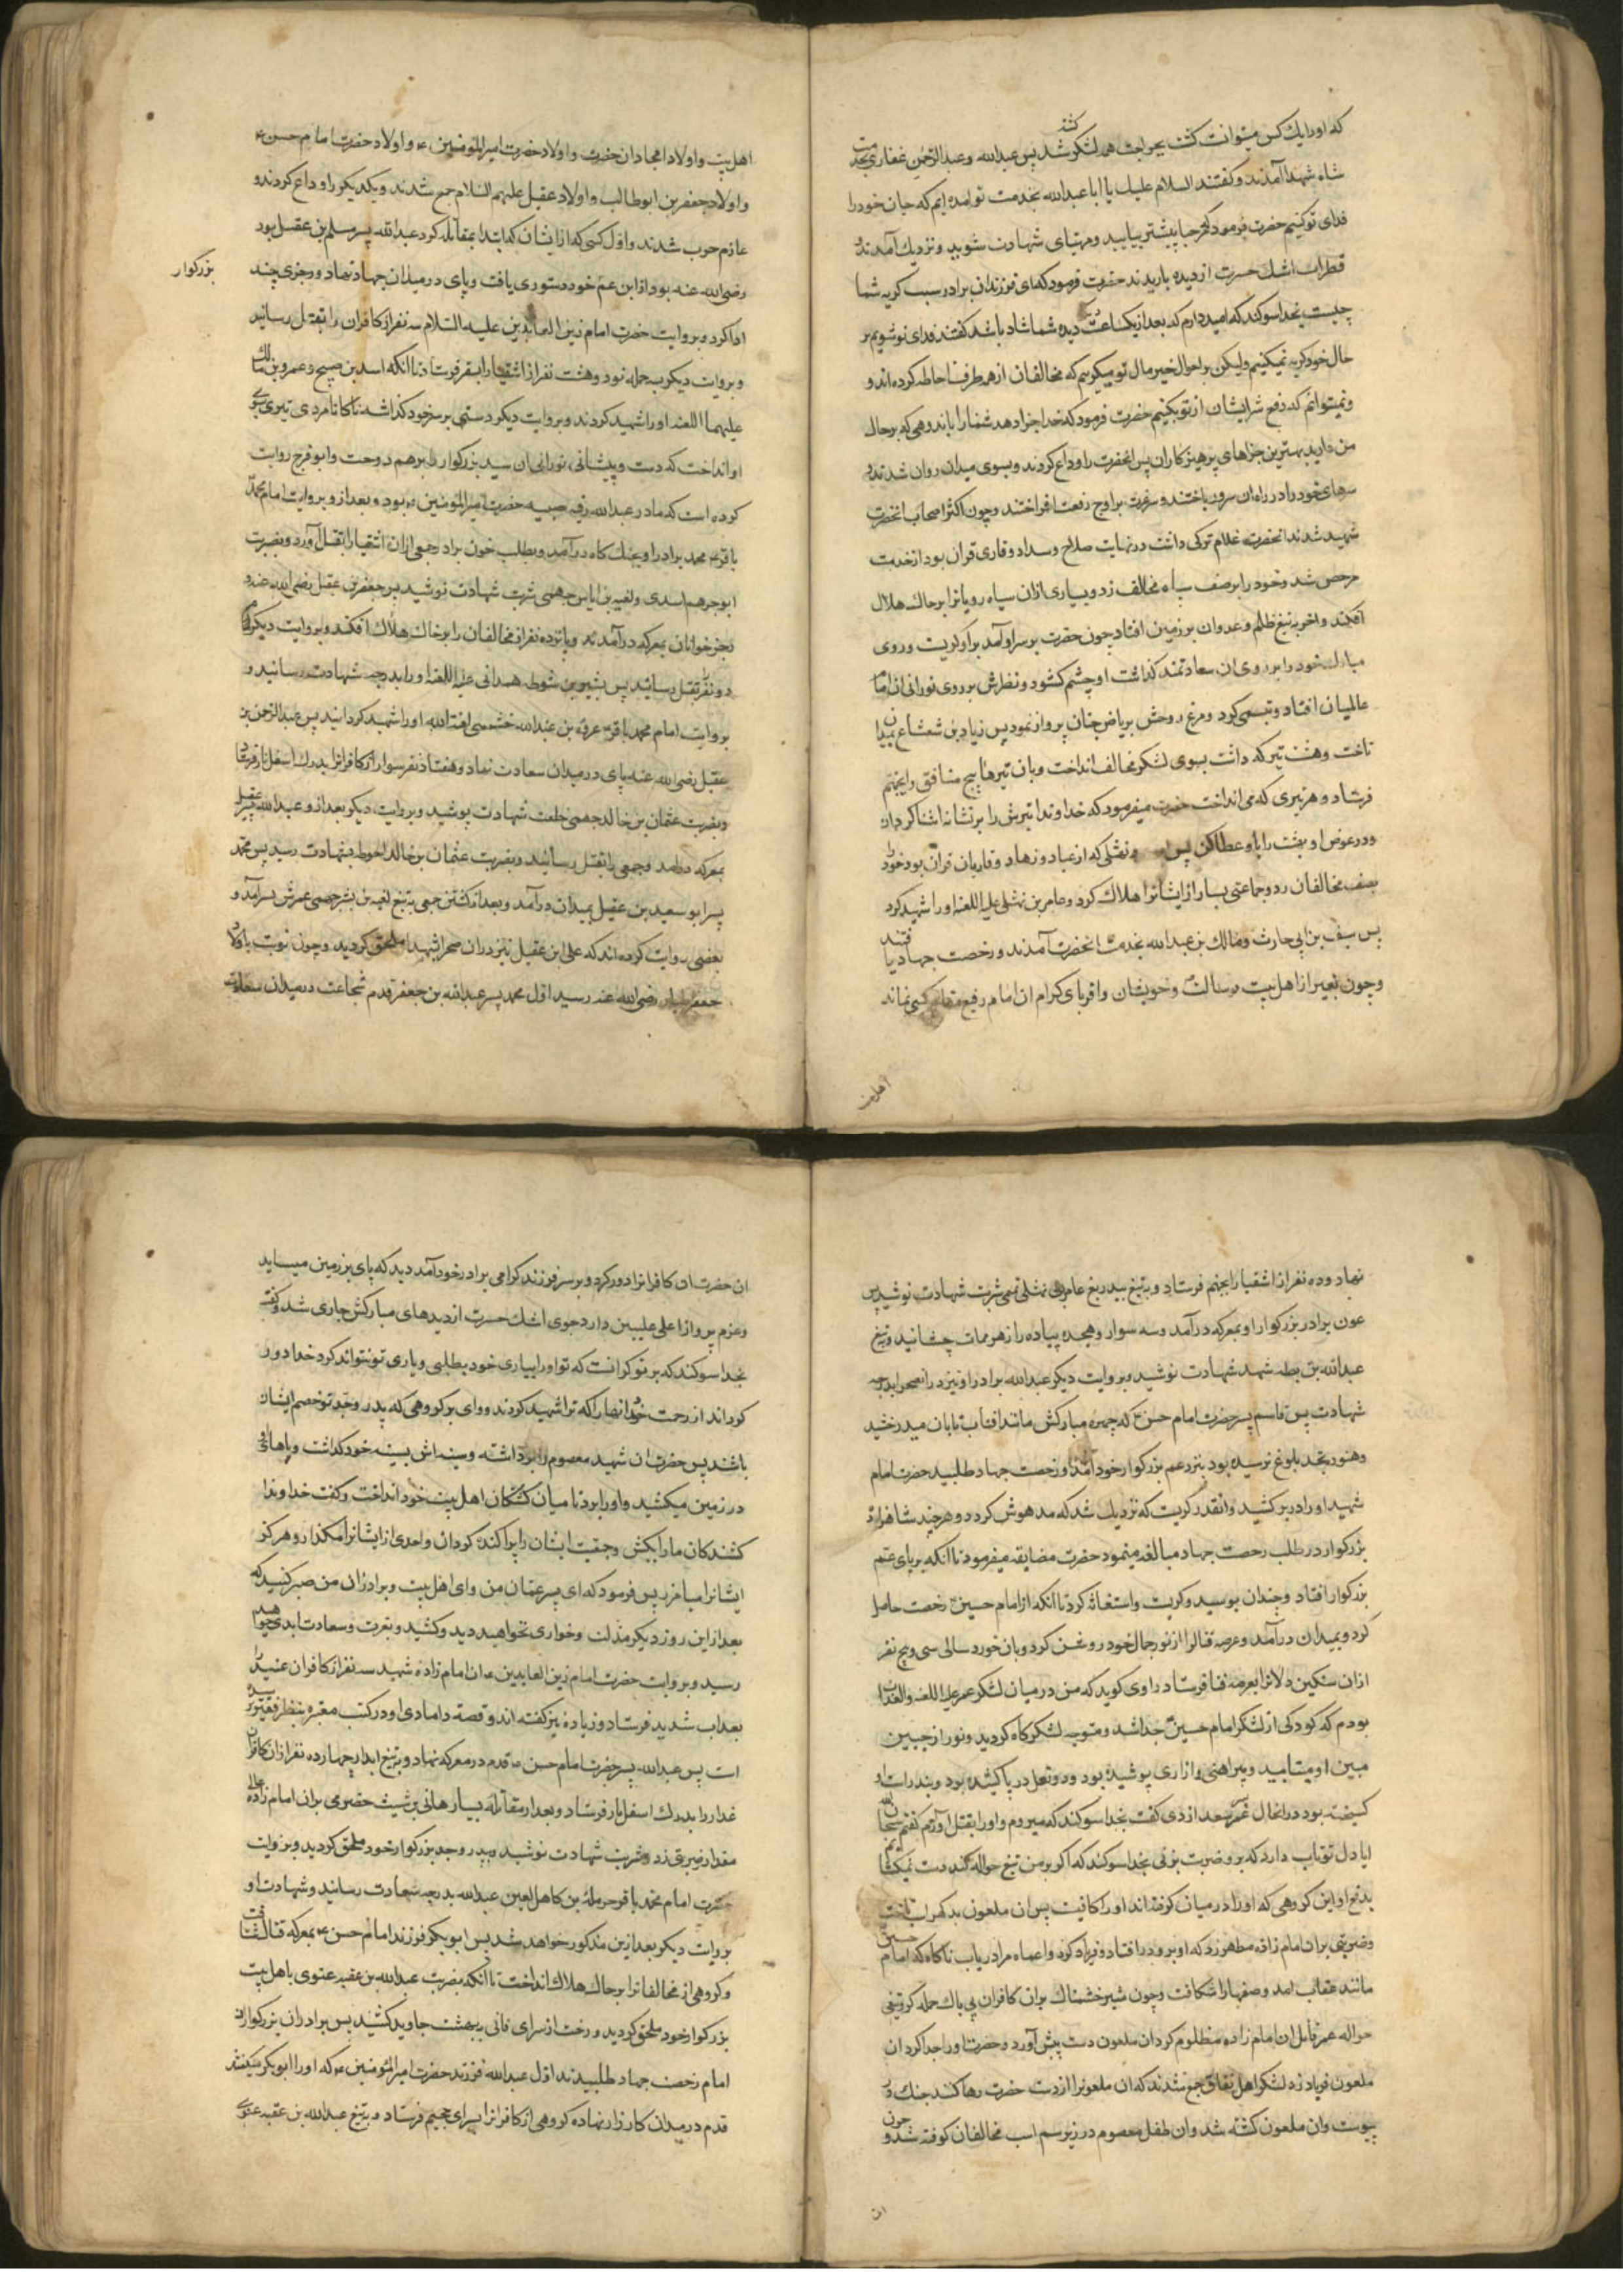 که او را یک کس میتوانست کشت بجراحت همه لشکر کشته شد پس عبدالله و عبدالرحمن غفاری بخدمت
شاه شهدا آمدند و گفتند السلام علیک یا ابا عبدالله بخدمت تو آمده ایم که جان خود را
فدای تو کنیم حضرت فرمود که مرحبا پیشتر بیایید و مهیای شهادت شوید و نزدیک آمدند و
قطرات اشک حسرت از دیده باریدند حضرت فرمود که ای فرزندان برادر سبب گریه شما
چیست بخدا سوکند که امید دارم که بعد از یکساعت دیده شما شاد باشد گفتند فدای تو شویم بر
حال خود گریه نمیکنیم ولیکن بر احوال خیر مال تو میگریم که مخالفان از همه طرف شما احاطه کرده اند و
و نمیتوانیم که دفع شر ایشان از تو بکنیم حضرت فرمود که خدا جزا دهد شما را باندوهی که بر حال
من دارید بهترین جزاهای پرهیزکاران پس آنحضرت را وداع کردند و بسوی میدان روان شدند و
سرهای خود را در راه آن سرور باختند و سر عزت بر اوج رفعت افراختند و چون اکثر اصحاب آنحضرت
شهید شدند آنحضرت غلام ترکی داشت در نهایت صلاح و سداد و قاری قران بود از خدمت
مرخص شد و خود را بر صف سپاه مخالف زد و بسیاری ازان سیاه رویانرا بر خاک هلاک
افکند و آخر به تیغ ظلم و عدوان بر زمین افتاد چون حضرت بر سر او آمد بر او گریست و روی
مبارک خود را بر روی آن سعادتمند گذاشت او چشم گشود و نظرش بر روی نورانی آن امام
عالمیان افتاد و تبسمی کرد و مرغ روحش بریاض جنان پرواز نمود پس زیاد بن شعثاء بمیدان
تاخت و هشت تیر که داشت بسوی لشکر مخالف انداخت و بآن تیرها پنج منافق را بجهنم
فرستاد و هر تیری که می انداخت حضرت میفرمود که خداوندا تیرش را بر نشانه آشنا گردان
و در عوض او بهشت را باو عطا کن پس نهشلی که از عباد و زهاد و قاریان قرآن بود خود را
بصف مخالفان زد و جماعتی بسیار از ایشانرا هلاک کرد و عامر بن نهشلی علیه اللعنه او را شهید کرد
پس سیف بن ابی حارث و مالک بن عبدالله بخدمت آنحضرت آمدند و رخصت جهاد یافتند
و چون بغیر از اهل بیت رسالت و خویشان و اقربای کرام آن امام رفیع مقام کسی نماند
اهل بیت
اهل بیت و اولاد امجاد آن حضرت و اولاد حضرت امیرالمؤمنین ع و اولاد حضرت امام حسن ع
و اولاد جعفر بن ابوطالب و اولاد عقیل علیهم السلام جمع شدند و یکدیکر را وداع کردند و
عازم حرب شدند و اول کسی که از ایشان که ابتدا بمقاتله کرد عبدالله پسر مسلم بن عقیل بود
رضی الله عنه بود از ابن عم خود دستوری یافت و پای در میدان جهاد نهاد و رجزی چند
بزرکوار
ادا کرد و بروایت حضرت امام زین العابدین علیه السلام سه نفر از کافران را بقتل رسانید
و بروایت دیکر بسه حمله نود و هشت نفر از اشقیا را بسقر فرستاد تا آنکه اسد بن صبیح و عمرو بن مالک
علیهما اللعنه او را شهید کردند و بروایت دیکر دستی بر سر خود گذاشته ناگاه نامردی تیری بسوی
او انداخت که دست و پیشانی نورانی آن سید بزرکوار را برهم دوخت و ابوفرج روایت
کرده است که مادر عبدالله رقیه صبیه حضرت امیرالمؤمنین ع بود و بعد از و بروایت امام محمد
باقر ع محمد برادر او بجنگ گاه درآمد و بطلب خون برادر جمعی ازان اشقیا را بقتل آورد و بضربت
ابوجرهم اسدی و لقیط بن ایاس جهمی شربت شهادت نوشید پس جعفر بن عقیل رضی الله عنه و
رجز خوانان بمعرکه درآمدند و پانزده نفر از مخالفان را بر خاک هلاک افکند و بروایت دیکر
دو نفر بقتل رسانید پس بشیر بن شوط همدانی علیه اللعنه او را بدرجه شهادت رسانید و
بروایت امام محمد باقر ع عروة بن عبدالله خثعمی لعنة الله او را شهید کردانید پس عبدالرحمن بن
عقیل رضی الله عنه پای در میدان سعادت نهاد و هفتاد نفر سوار از کافرانرا بدرک اسفل نار فرستاد
و بضربت عثمان بن خالد جهمی خلعت شهادت پوشید و بروایت دیکر بعد از و عبدالله پسر عقیل
بمعرکه درآمد و جمعی را بقتل رسانید و بضربت عثمان بن خالد بشهادت رسید پس محمد
پسر ابوسعید بن عقیل بمیدان درآمد و بعد از کشتن جمعی به تیغ لقیط بن یاسر جهمی عمرش بسر آمد و
بعضی روایت کرده اند که علی ابن عقیل نیز دران صحرا بشهدا ملحق گردید و چون نوبت باولاد
جعفر طیار رضی الله عنه رسید اول محمد پسر عبدالله بن جعفر قدم شجاعت در میدان سعادت
نهاد و ده نفر از اشقیا را بجهنم فرستاد و به تیغ بیدریغ عامر بن نهشلی تمیمی شربت شهادت نوشید پس
عون برادر بزرکوار او بمعرکه درآمد و سه سوار و هجده پیاده را زهر ممات چشانید و به تیغ
عبدالله بن بطه شهد شهادت نوشید و بروایت دیکر عبدالله برادر او نیز دران صحرا بدرجه
شهادت پس قاسم پسر حضرت امام حسن ع که چهره مبارکش مانند آفتاب تابان میدرخشید
و هنوز بحد بلوغ نرسیده بود بنزد عم بزرکوار خود آمد و رخصت جهاد طلبید حضرت امام
شهید او را در بر کشید و آنقدر گریست که نزدیک شد که مدهوش گردد و هرچند شاهزاده
بزرکوار در طلب رخصت جهاد مبالغه مینمود حضرت مضایقه میفرمود تا آنکه بر پای عم
بزرکوار افتاد و چندان بوسید و گریست و استغاثه کرد تا آنکه از امام حسین ع رخصت حاصل
کرد و بمیدان درآمد و عرصه قتال را از نور جمال خود روشن کرد و بان خورد سالی سی و پنج نفر
ازان سنگین دلانرا بعرصه فنا فرستاد راوی کوید که من در میان لشکر عمر علیه اللعنه والعذاب
بودم که کودکی از لشکر امام حسین ع جدا شد و متوجه لشکرگاه گردید و نور از جبین
مبین او میتابید و پیراهنی و ازاری پوشیده بود و دو نعل در پا کشیده بود و بند راست او
گسیخته بود در آنحال عمر سعد ازدی گفت بخدا سوکند که میروم و او را بقتل آورم گفتم سبحان الله
ایا دل تو تاب دارد که بر او ضربت بزنی بخدا سوکند که اگر بر من تیغ حواله کند دست نمیکشایم
بدفع او این گروهی که او را در میان کرفته اند او را کافیست پس آن ملعون بدگهر اسب تاخت
و ضربتی بران امام زاده مطهر زد که او برو در افتاد و فریاد کرد وا عماه مرا دریاب ناگاه که امام حسین
مانند عقاب آمد و صفها را شکافت و چون شیر خشمناک بران کافران بی باک حمله کرد تیغی
حواله عمر قاتل آن امام زاده مظلوم کرد آن ملعون دست پیش آورد و حضرت او را جدا کرد آن
ملعون فریاد زد لشکر اهل نفاق جمع شدند که آن ملعون را از دست حضرت رها کنند جنگ در
پیوست و آن ملعون کشته شد و آن طفل معصوم در زیر سم اسب مخالفان کوفته شد و چون
ان
ان حضرت آن کافرانرا دور کرد و بر سر فرزند گرامی برادر خود آمد دید که پای بر زمین میساید
و عزم پرواز اعلی علیین دارد جوی اشک حسرت از دیدهای مبارکش جاری شد و گفت
بخدا سوکند که بر تو گرانست که تو او را بیاری خود بطلبی و یاری تو نتواند کرد خدا دور
گرداند از رحمت خود آنها را که ترا شهید کردند و وای بر گروهی که پدر و جد تو خصم ایشان
باشند پس حضرت آن شهید معصوم را برداشته و سینه اش بسینه خود گذاشت و پاهای او
در زمین میکشید و او را برد تا میان کشتگان اهل بیت خود انداخت و گفت خداوندا
کشندکان ما را بکش و جمعیت ایشان را پراکنده گردان و احدی از ایشانرا مگذار و هرگز
ایشانرا میامرز پس فرمود که ای پسر عمان من و ای اهل بیت و برادران من صبر کنید که
بعد از این روز دیگر مذلت و خواری نخواهید دید و کشید و بعزت و سعادت ابدی خواهید
رسید و بروایت حضرت امام زین العابدین ع آن امام زاده شهید سه نفر از کافران عنید را
بعذاب شدید فرستاد و زیاده نیز گفته اند و قصه دامادی او در کتب معتبره بنظر فقیر نرسیده
است پس عبدالله پسر حضرت امام حسن ع قدم در معرکه نهاد و بتیغ آبدار چهارده نفر ازان کافران
غدار را بدرک اسفل نار فرستاد و بعد از مقاتله بسیار هانی بن شبیث حضرمی بران امام زاده عالی
مقدار ضربتی زد و شربت شهادت نوشید و بپدر و جد بزرکوار خود ملحق گردید و بروایت
حضرت امام محمد باقر حرملة بن کاهل لعین عبدالله بدرجه سعادت رسانید و شهادت او
بروایت دیگر بعد ازین مذکور خواهد شد پس ابوبکر فرزند امام حسن ع بمعرکه قتال شتافت
و گروهی از مخالفانرا بر خاک هلاک انداخت تا آنکه بضربت عبدالله بن عقبه غنوی باهل بیت
بزرکوار خود ملحق گردید و رخت از سرای فانی ببهشت جاوید کشید پس برادران بزرکوار آن
امام رخصت جهاد طلبیدند اول عبدالله فرزند حضرت امیرالمؤمنین ع که او را ابوبکر میگفتند
قدم در میدان کارزار نهاده گروهی از کافرانرا بسرای جحیم فرستاد و به تیغ عبدالله بن عقبه غنوی